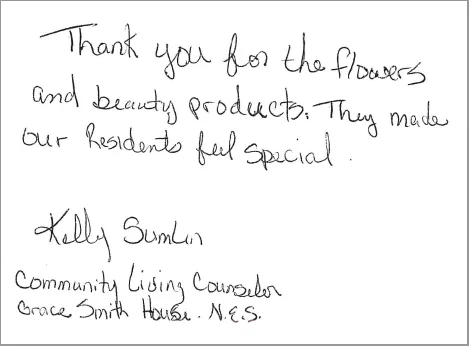 Thank you for the flowers
and beauty products. They made
our Residents feel special.
Kelly Sumlin
Community Living Counselor
Grace Smith House. N.E.S.